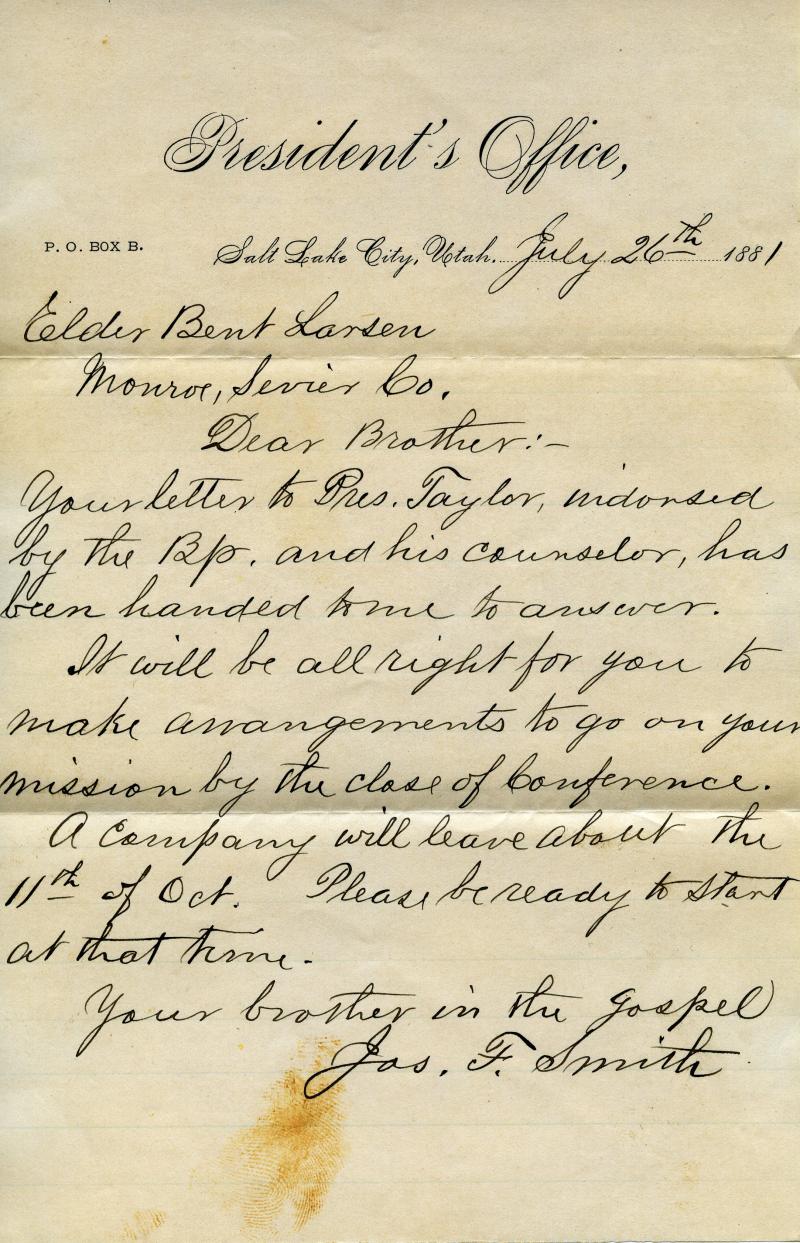 President's Office,
P. O. BOX B.
Salt Lake City, Utah. July 26th 1881
Elder Bent Larsen
Monroe, Sevier Co.
Dear Brother:-
Your letter to Pres. Taylor, indorsed
by the Bp. and his counselor, has
been handed to me to answer.
It will be all right for you to
make arrangements to go on your
mission by the close of Conference.
A company will leave about the
11th of Oct. Please be ready to start
at that time.
Your brother in the gospel
Jos. F. Smith